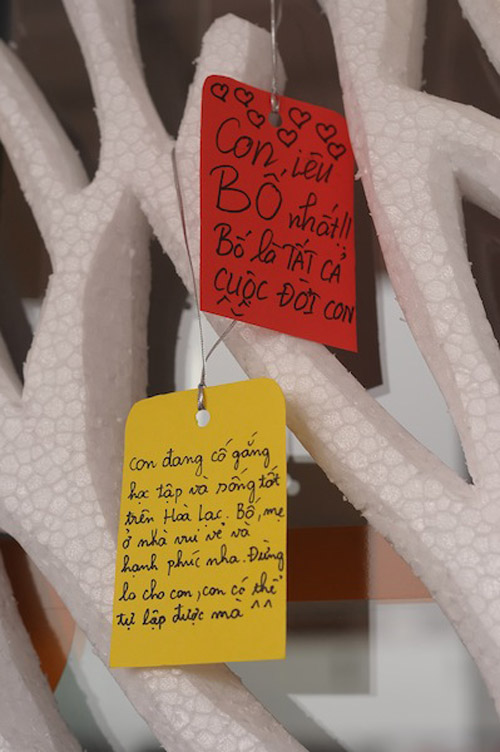 Con iêu
BỐ nhất!!
Bố là TẤT CẢ
CUỘC ĐỜI CON
^^
con đang cố gắng
học tập và sống tốt
trên Hoà Lạc. Bố, mẹ
ở nhà vui vẻ và
hạnh phúc nha. Đừng
lo cho con, con có thể
tự lập được mà ^^